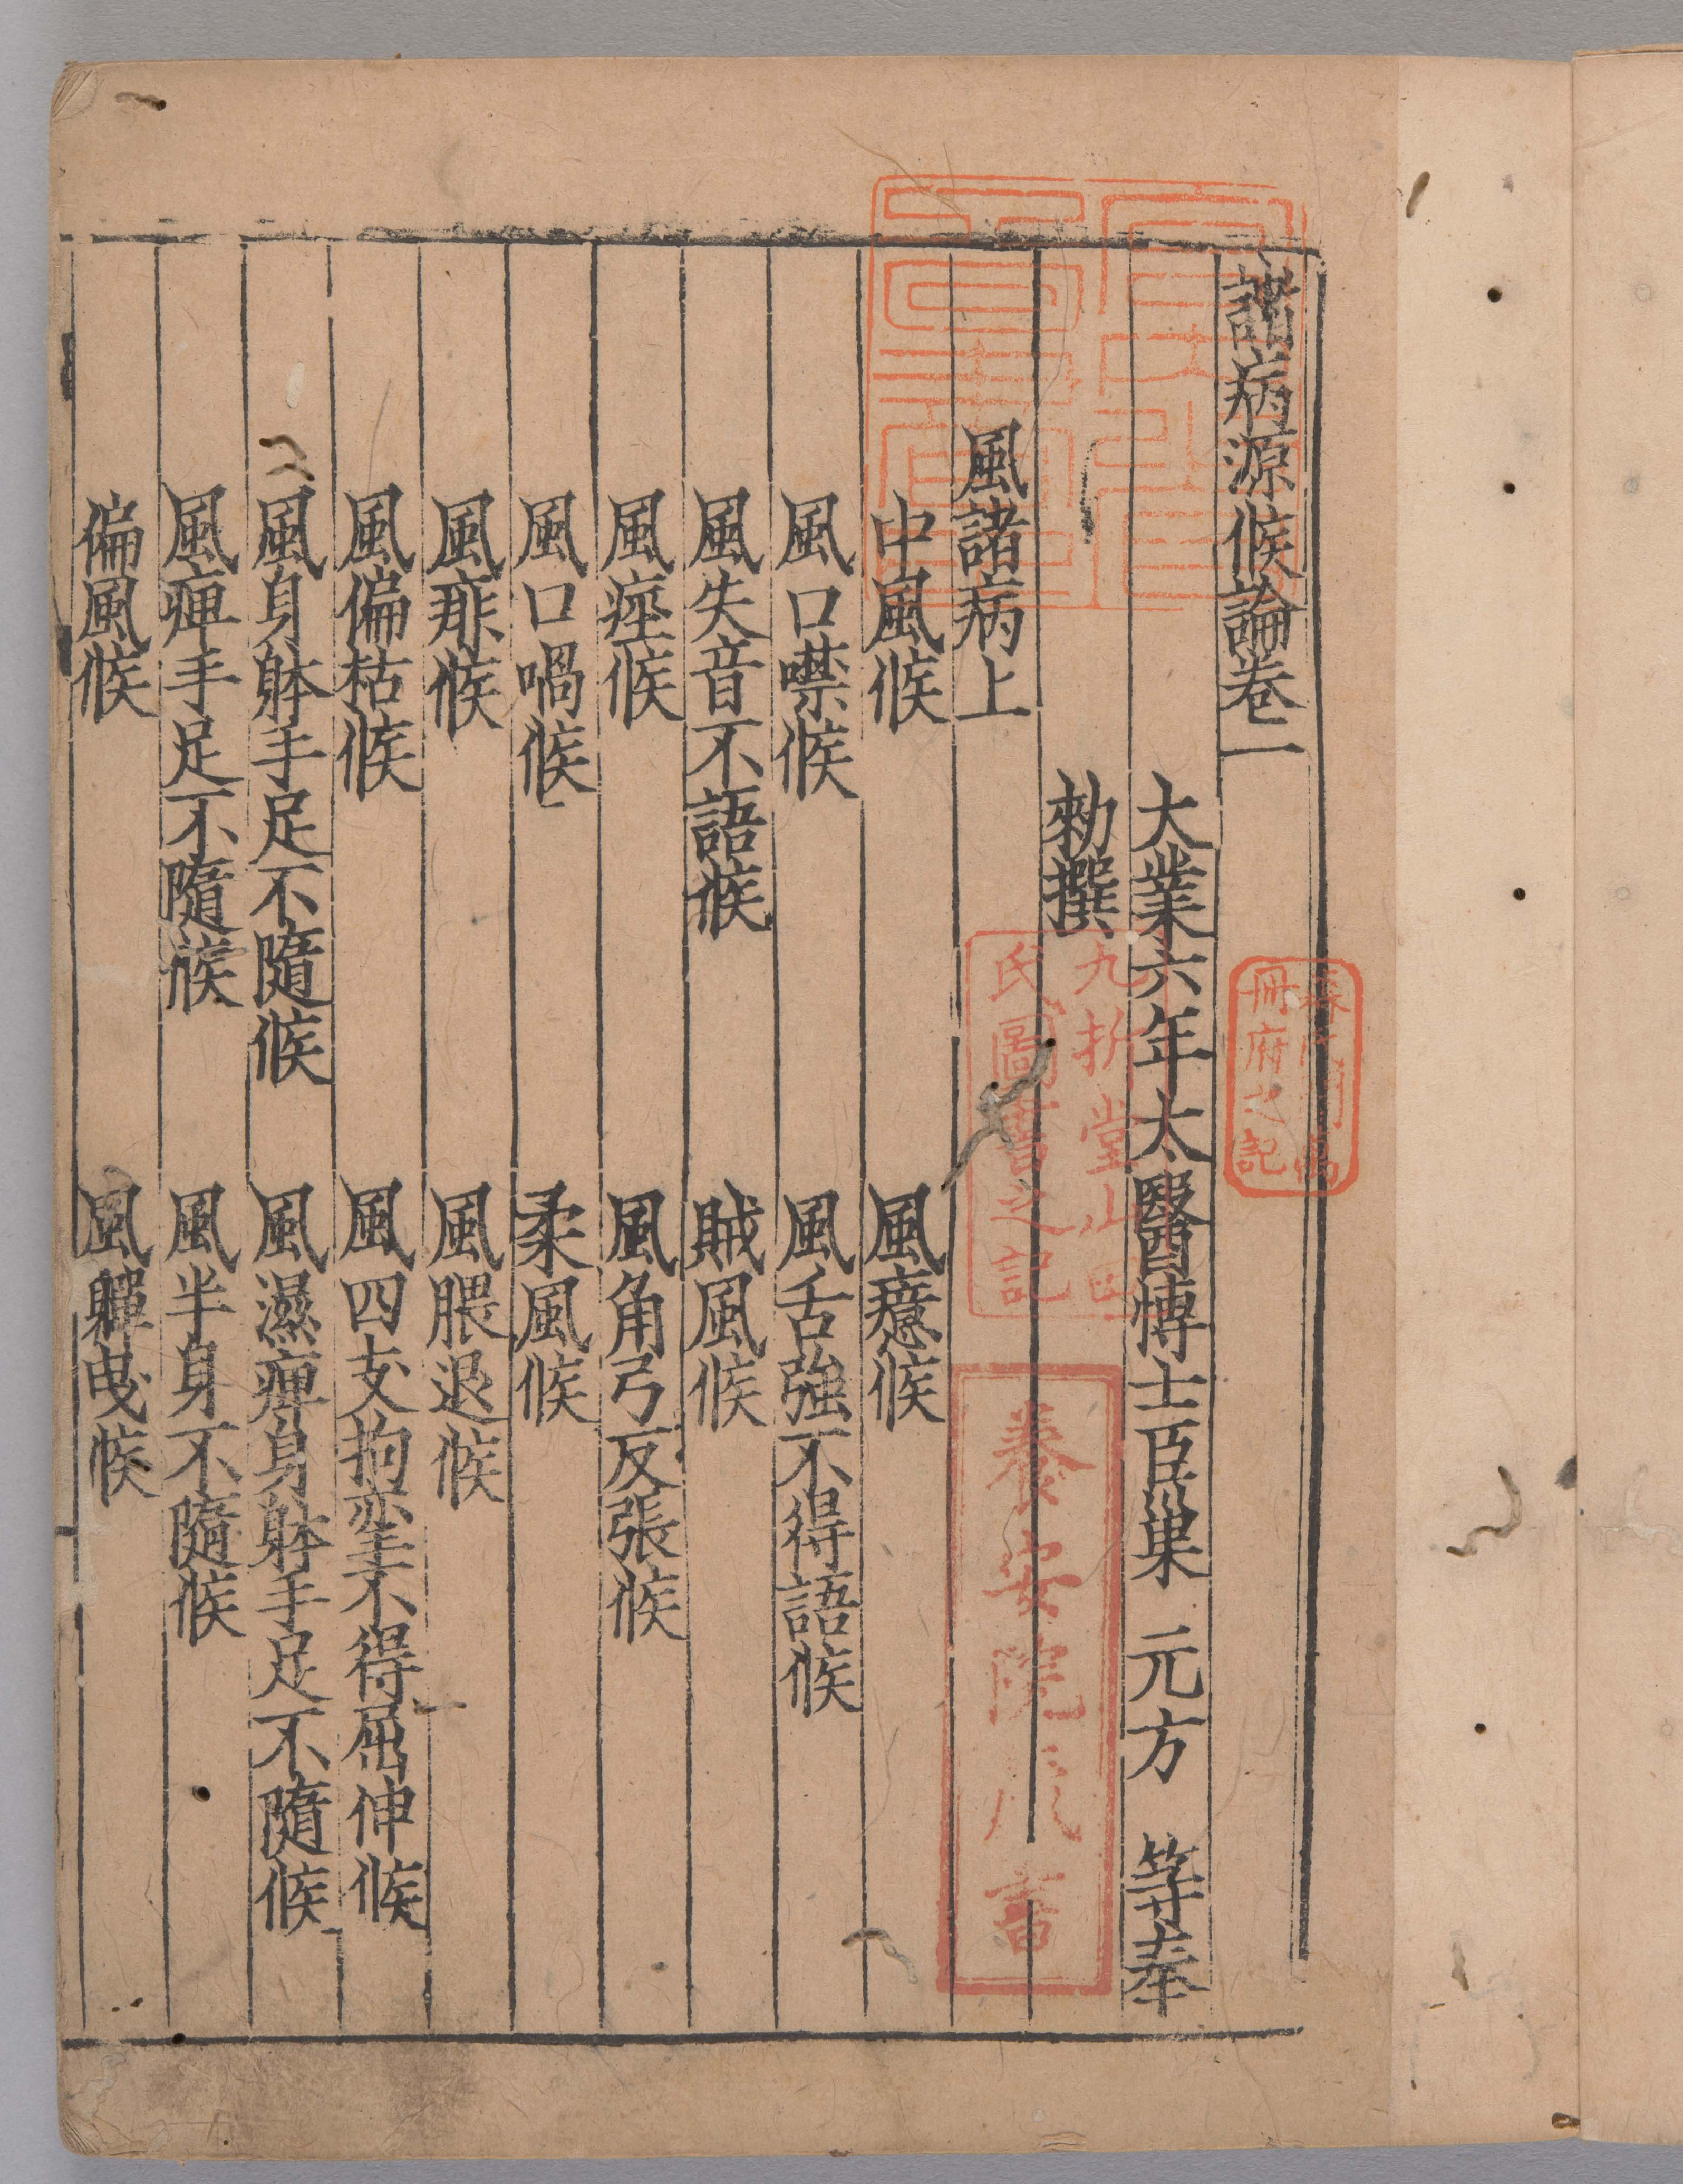 諸病源候論卷一
大業六年太醫博士臣巢元方等奉
勑撰
風諸病上
中風候 風癔候
風口噤候 風舌強不得語候
風失音不語候 賊風候
風痙候 風角弓反張候
風口喎候 柔風候
風痱候 風腲退候
風偏枯候 風四支拘攣不得屈伸候
風身躰手足不隨候 風濕痺身躰手足不隨候
風痺手足不隨候 風半身不隨候
偏風候 風軃曳候
九折堂山田
氏圖書之記
養安院藏書
冊府之記